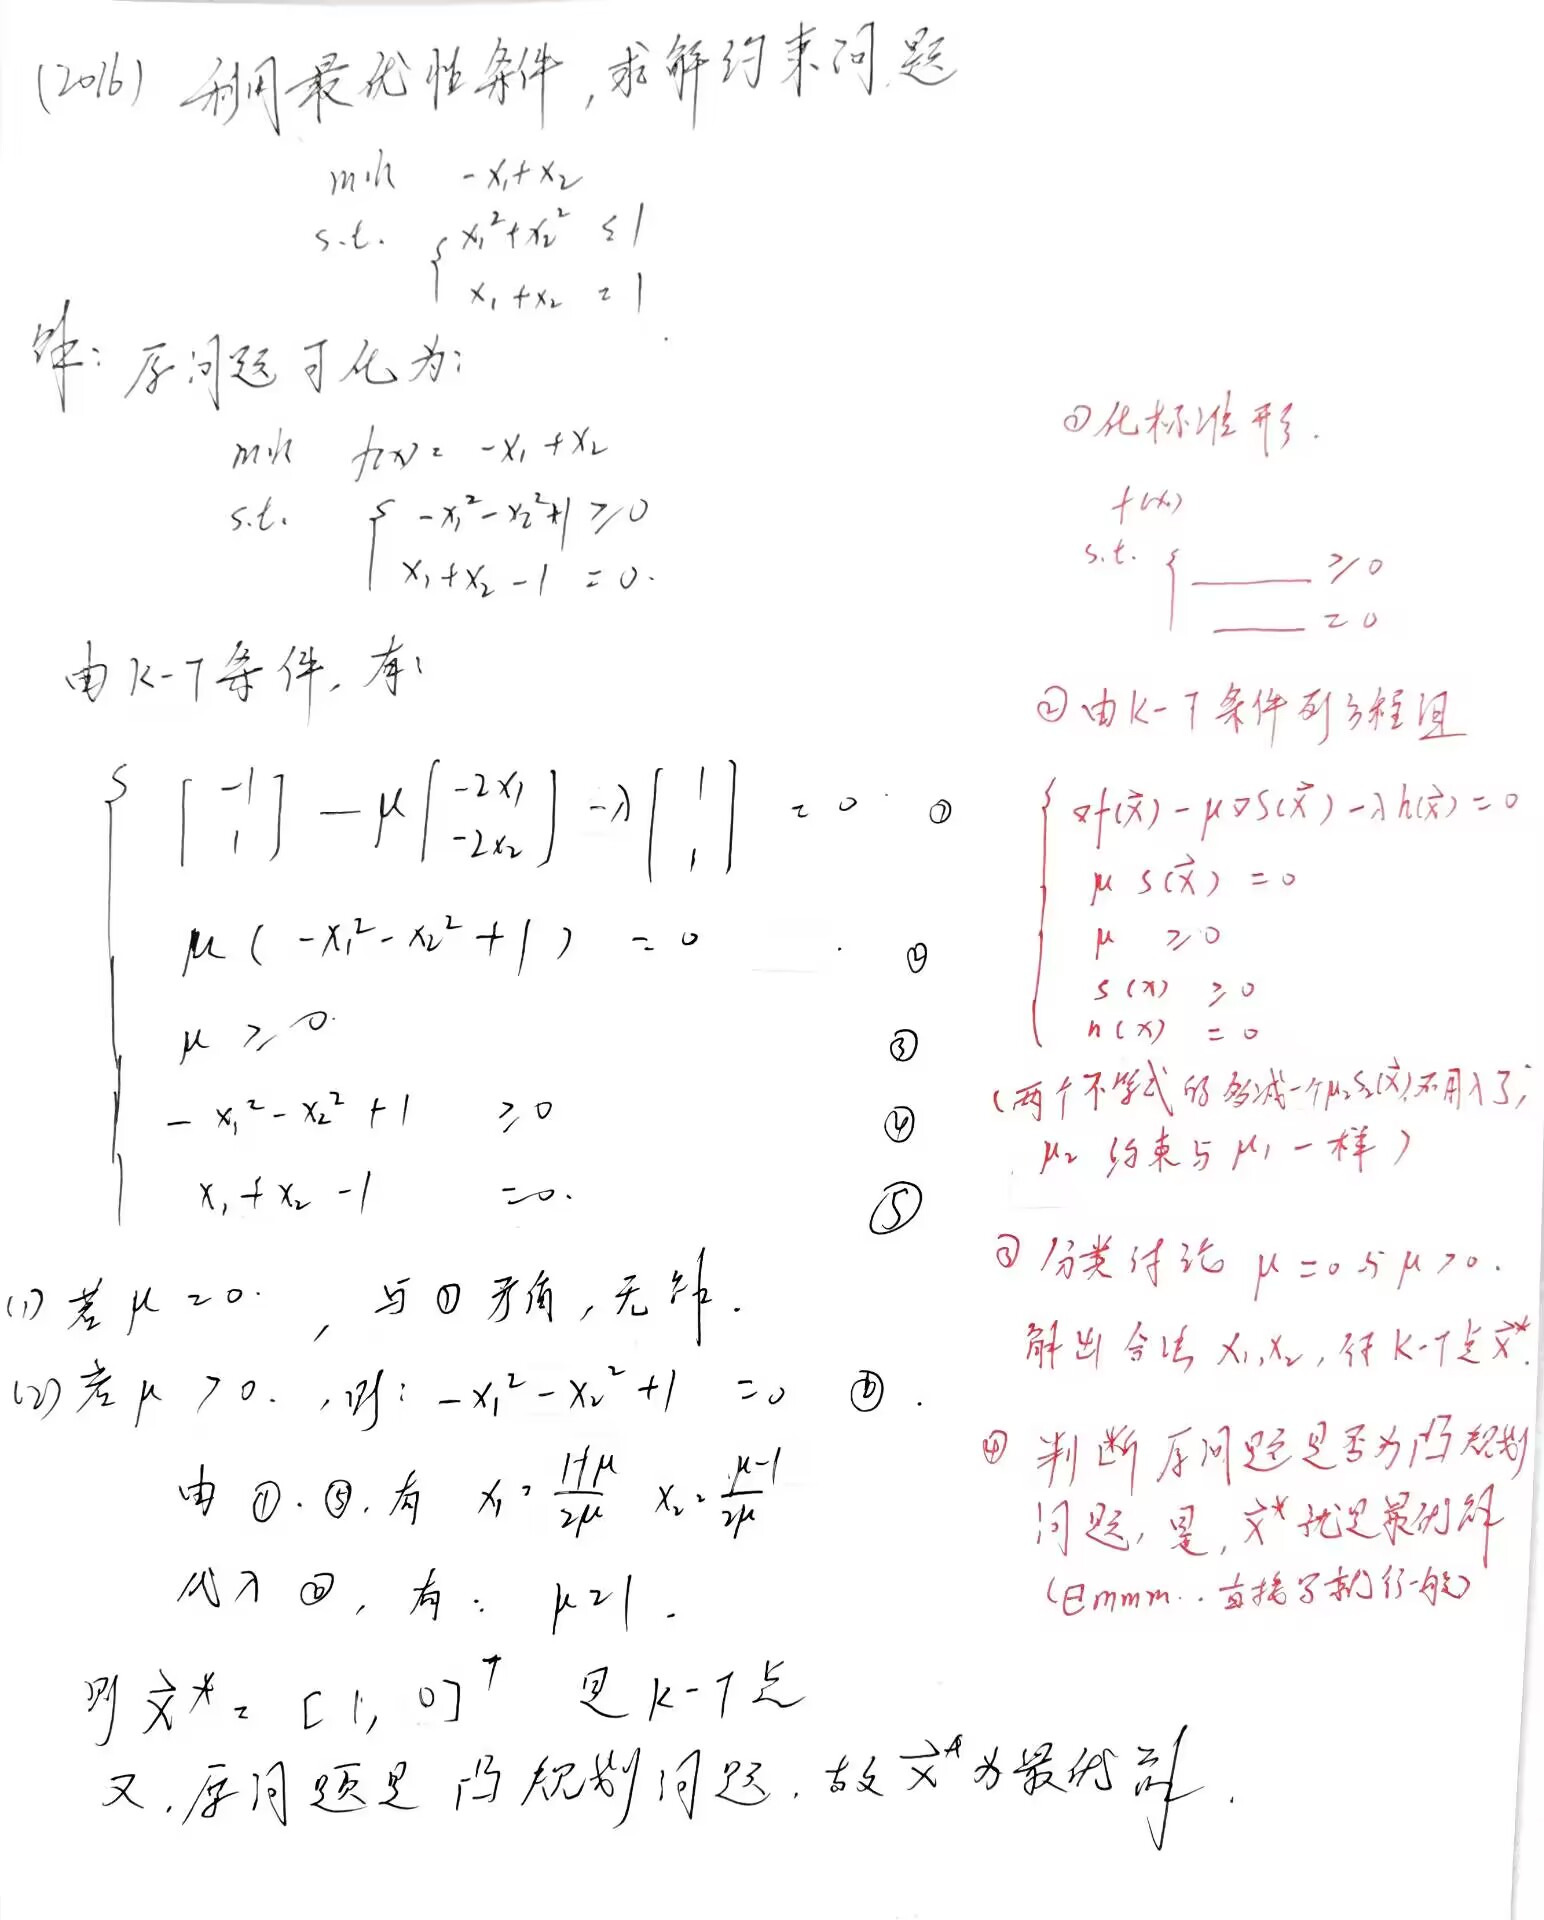 (2016) 利用最优性条件,求解约束问题
min -x₁+x₂
s.t. { x₁²+x₂² ≤ 1
x₁+x₂ = 1
解: 原问题可化为:
min f(x) = -x₁+x₂
s.t. { -x₁²-x₂²+1 ≥ 0
x₁+x₂-1 = 0.
由K-T条件,有:
{ [-1 1] - μ[-2x₁ -2x₂] - λ[1 1] = 0 ①
μ(-x₁²-x₂²+1) = 0 ②
μ ≥ 0. ③
-x₁²-x₂²+1 ≥ 0 ④
x₁+x₂-1 = 0. ⑤
(1) 若 μ=0. , 与①矛盾,无解.
(2) 若 μ>0. ,则: -x₁²-x₂²+1 = 0 ⑥.
由 ①.⑤.有 x₁=(1+μ)/2μ x₂=(μ-1)/2μ
代入⑥, 有: μ=1.
则 x⃗* = [1, 0]ᵀ 是K-T点
又,原问题是凸规划问题,故x⃗*为最优解.
①化标准形.
f(x)
s.t. { ____ ≥ 0
____ = 0
②由K-T条件列方程组
{ ∇f(x⃗) - μ∇S(x⃗) - λh(x⃗) = 0
μ S(x⃗) = 0
μ ≥ 0
S(x) ≥ 0
h(x) = 0
(两个不等式的多减一个μ₂S₂(x⃗),不用λ了,
μ₂ 约束与μ₁一样)
③ 分类讨论 μ=0与μ>0.
解出合法 x₁,x₂, 得K-T点x⃗*.
④ 判断原问题是否为凸规划
问题, 是, x⃗*就是最优解
(Emmm.. 直接写就行一般)